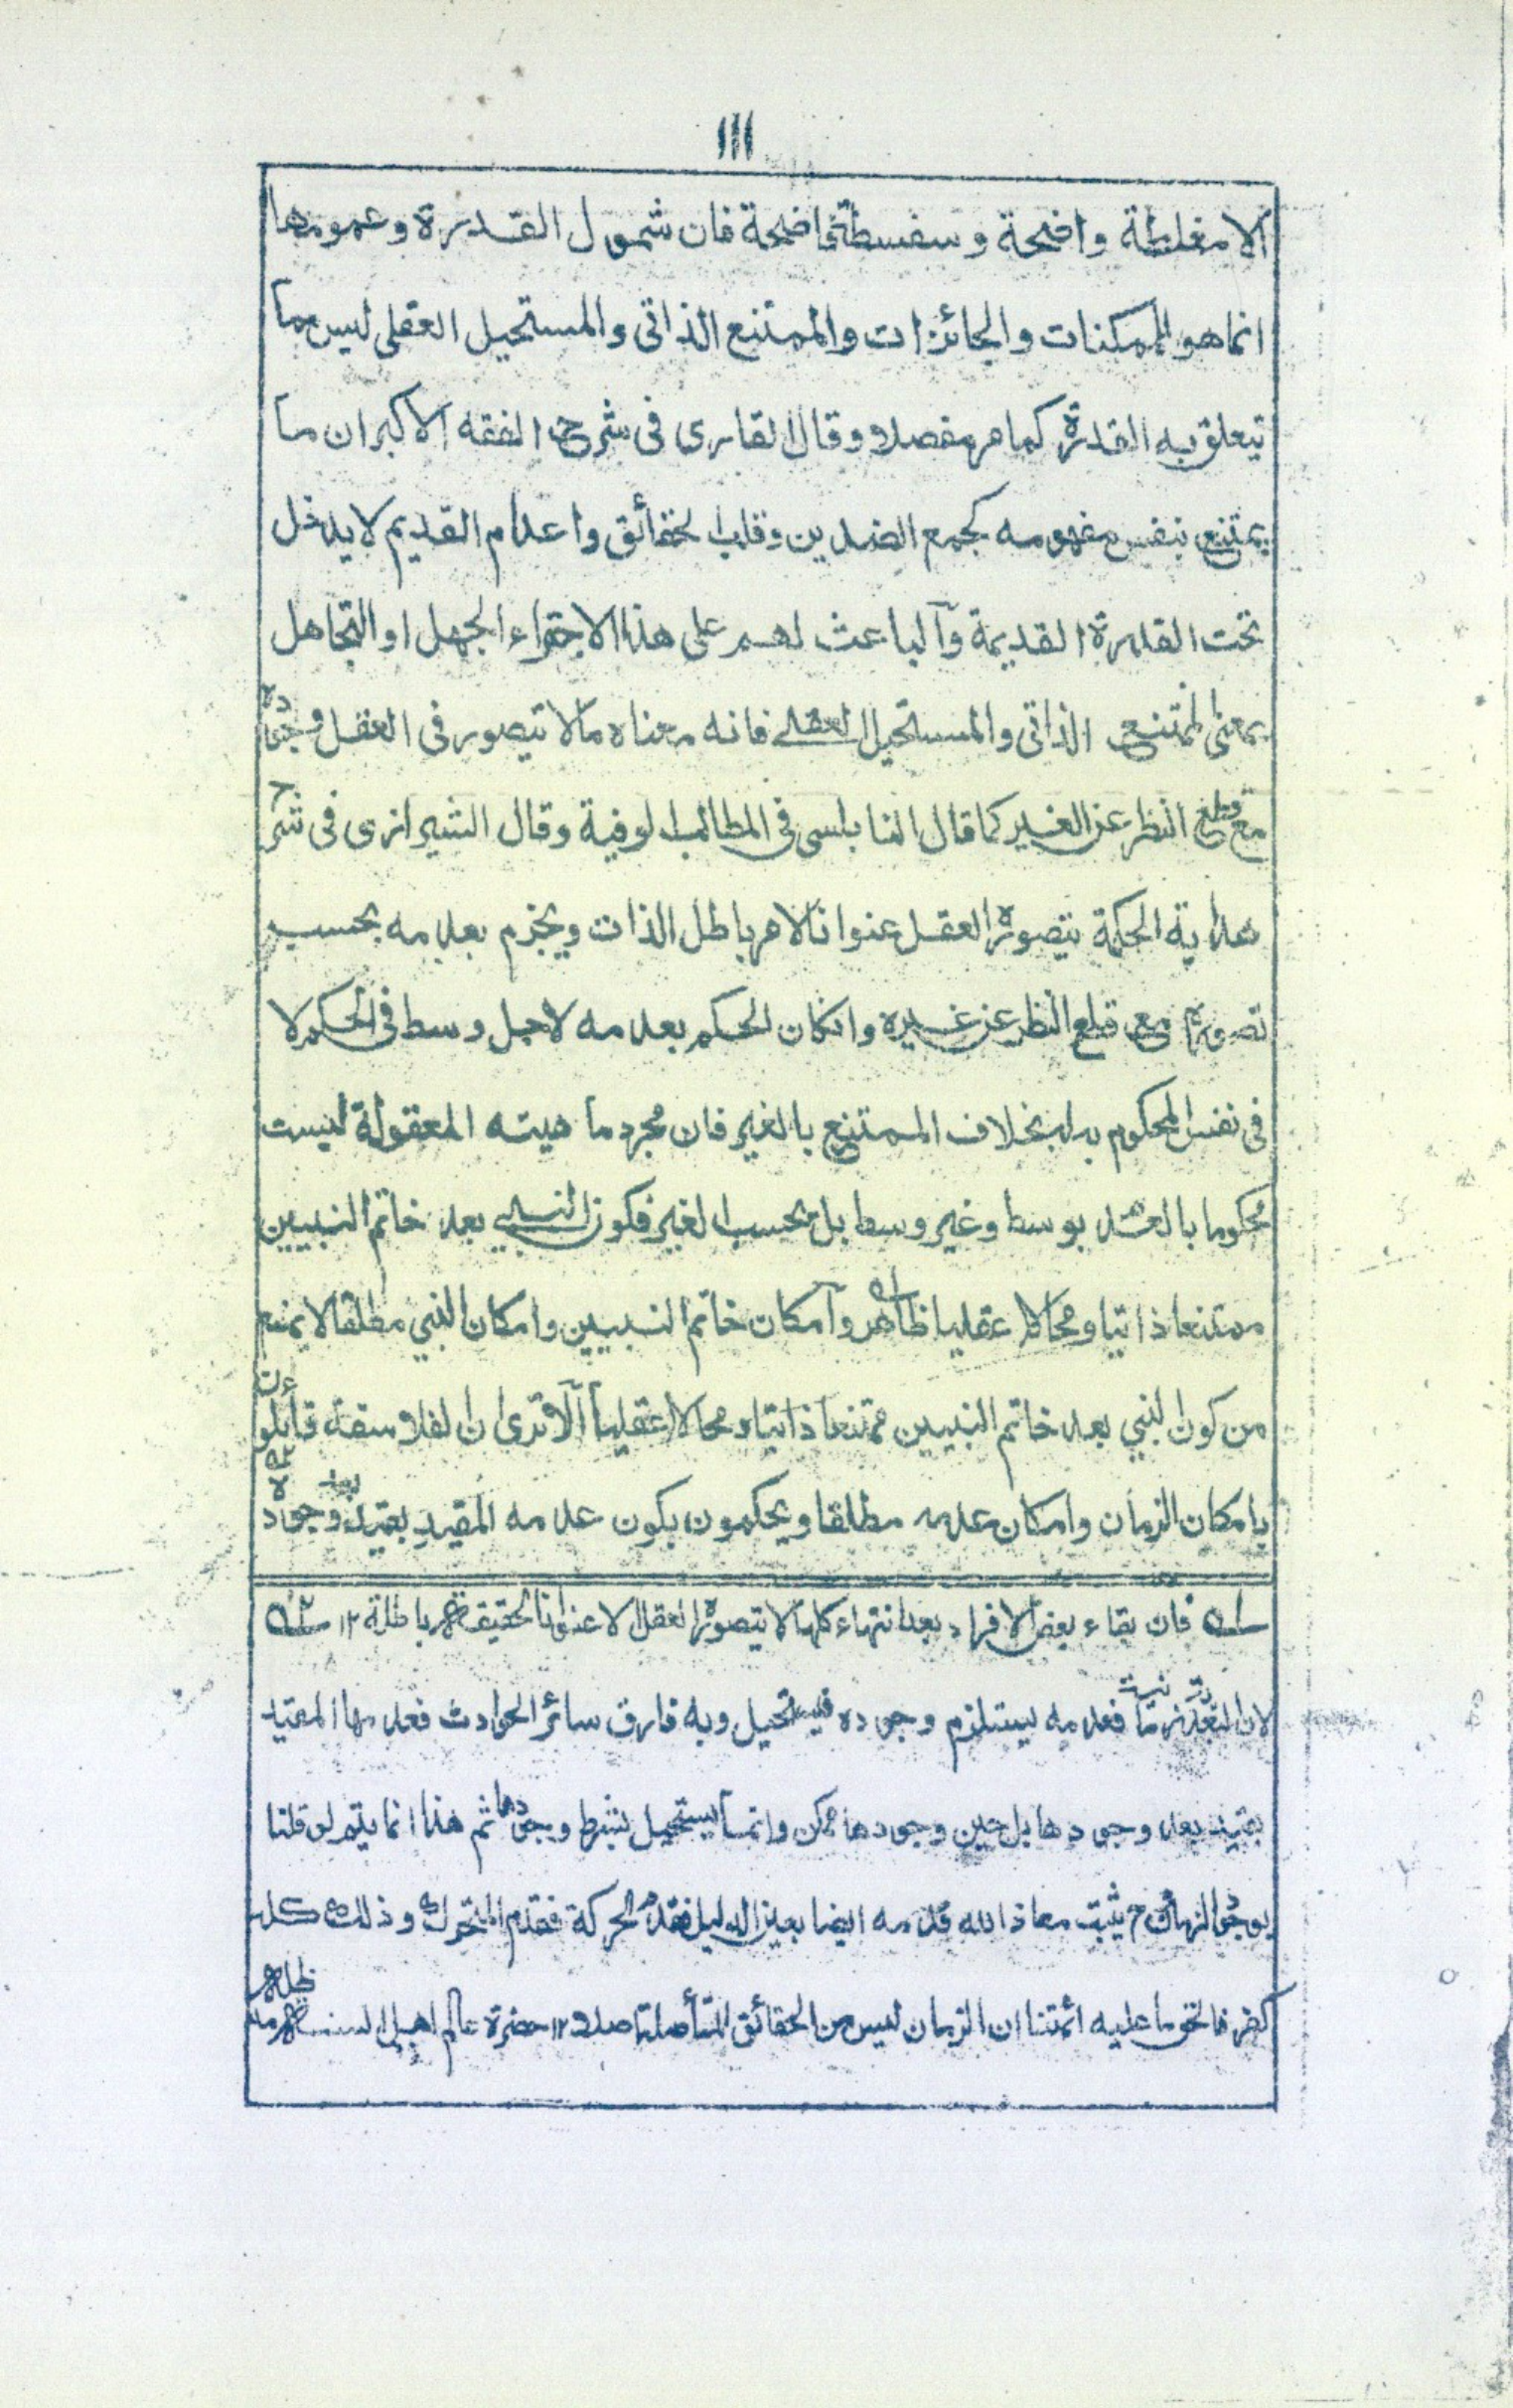 ١١١
الا مغلطة واضحة و سفسطة فاضحة فان شمول القدرة و عمومها
انما هو للممكنات و الجائزات و الممتنع الذاتى و المستحيل العقلى ليس مما
تتعلق به القدرة كما مر مفصلا و قال القارى فى شرح الفقه الاكبر ان ما
يمتنع بنفس مفهومه كجمع الضدين و قلب الحقائق و اعدام القديم لا يدخل
تحت القدرة القديمة و الباعث لهم على هذا الاجتراء الجهل او التجاهل
بمعنى الممتنع الذاتى و المستحيل العقلے فانه معناه ما لا تيصور فى العقل وجوده
مع قطع النظر عن الغير كما قال النابلسى فى المطالب الوفية و قال الشيرازى فى شرح
هداية الحكمة يتصوره العقل عنوانا لامر باطل الذات و يجزم بعدمه بحسب
تصوره مع قطع النظر عن غيره و انكان الحكم بعدمه لاجل وسط فى الحكم لا
فى نفس المحكوم به بخلاف الممتنع بالغير فان مجرد ماهيته المعقولة ليست
محكوما بالعدم بوسط و غير وسط بل بحسب الغير فكون النبي بعد خاتم النبيين
ممتنعا ذاتيا و محالا عقليا ظاهر و امكان خاتم النبيين و امكان النبي مطلقا لا يمنع
من كون النبي بعد خاتم النبيين ممتنعا ذاتيا و محالا عقليا الا ترى ان الفلاسفة قائلون
بامكان الزمان و امكان عدمه مطلقا و يحكمون بكون عدمه المقيد بقيد بعد وجوده
فان بقاء بعض الافراد بعد انتهاء كلها لا يتصوره العقل الا عنوانا لحقيقة باطلة ١٢
لان البعدية زمانية فعدمه يستلزم وجوده فيستحيل و به فارق سائر الحوادث فعدمها المقيد
بقيد بعد وجودها بل حين وجودها ممكن و انما يستحيل بشرط وجودها ثم هذا انما يتم لو قلنا
بوجود الزمان و ح يثبت معاذ الله قدمه ايضا بعين الدليل فقدم الحركة فقدم المتحرك و ذلك كله
كفر فالحق ما عليه ائمتنا ان الزمان ليس من الحقائق المتأصلة اصلا ١٢ حضرة عالم اهل السنة